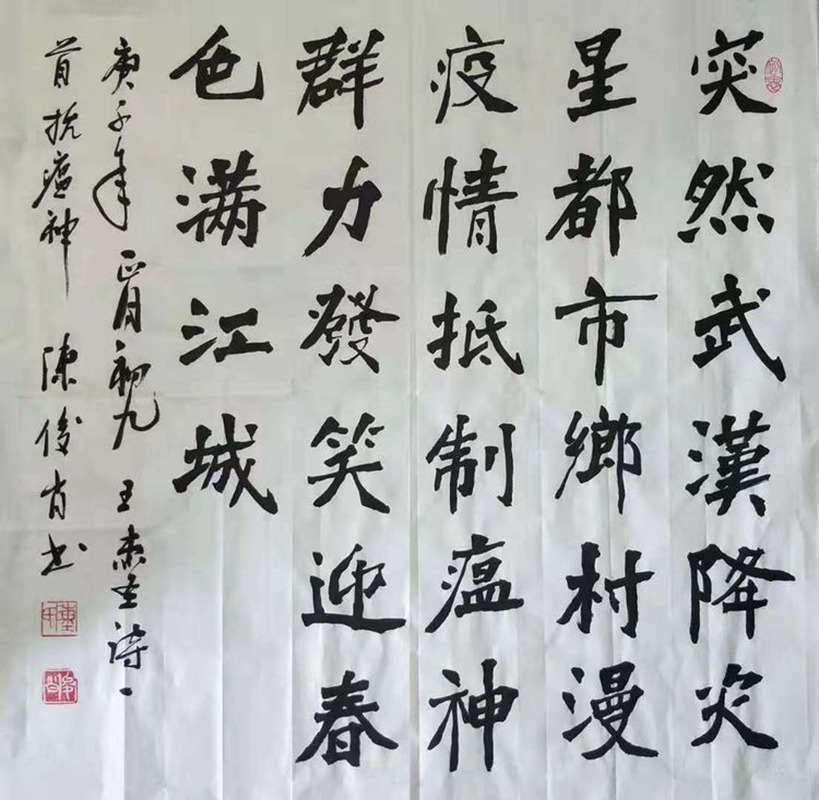 突然武漢降灾
星都市鄉村漫
疫情抵制瘟神
群力發笑迎春
色满江城
庚子年 正月初九 王诗一
首抗瘟神 陳俊肖书